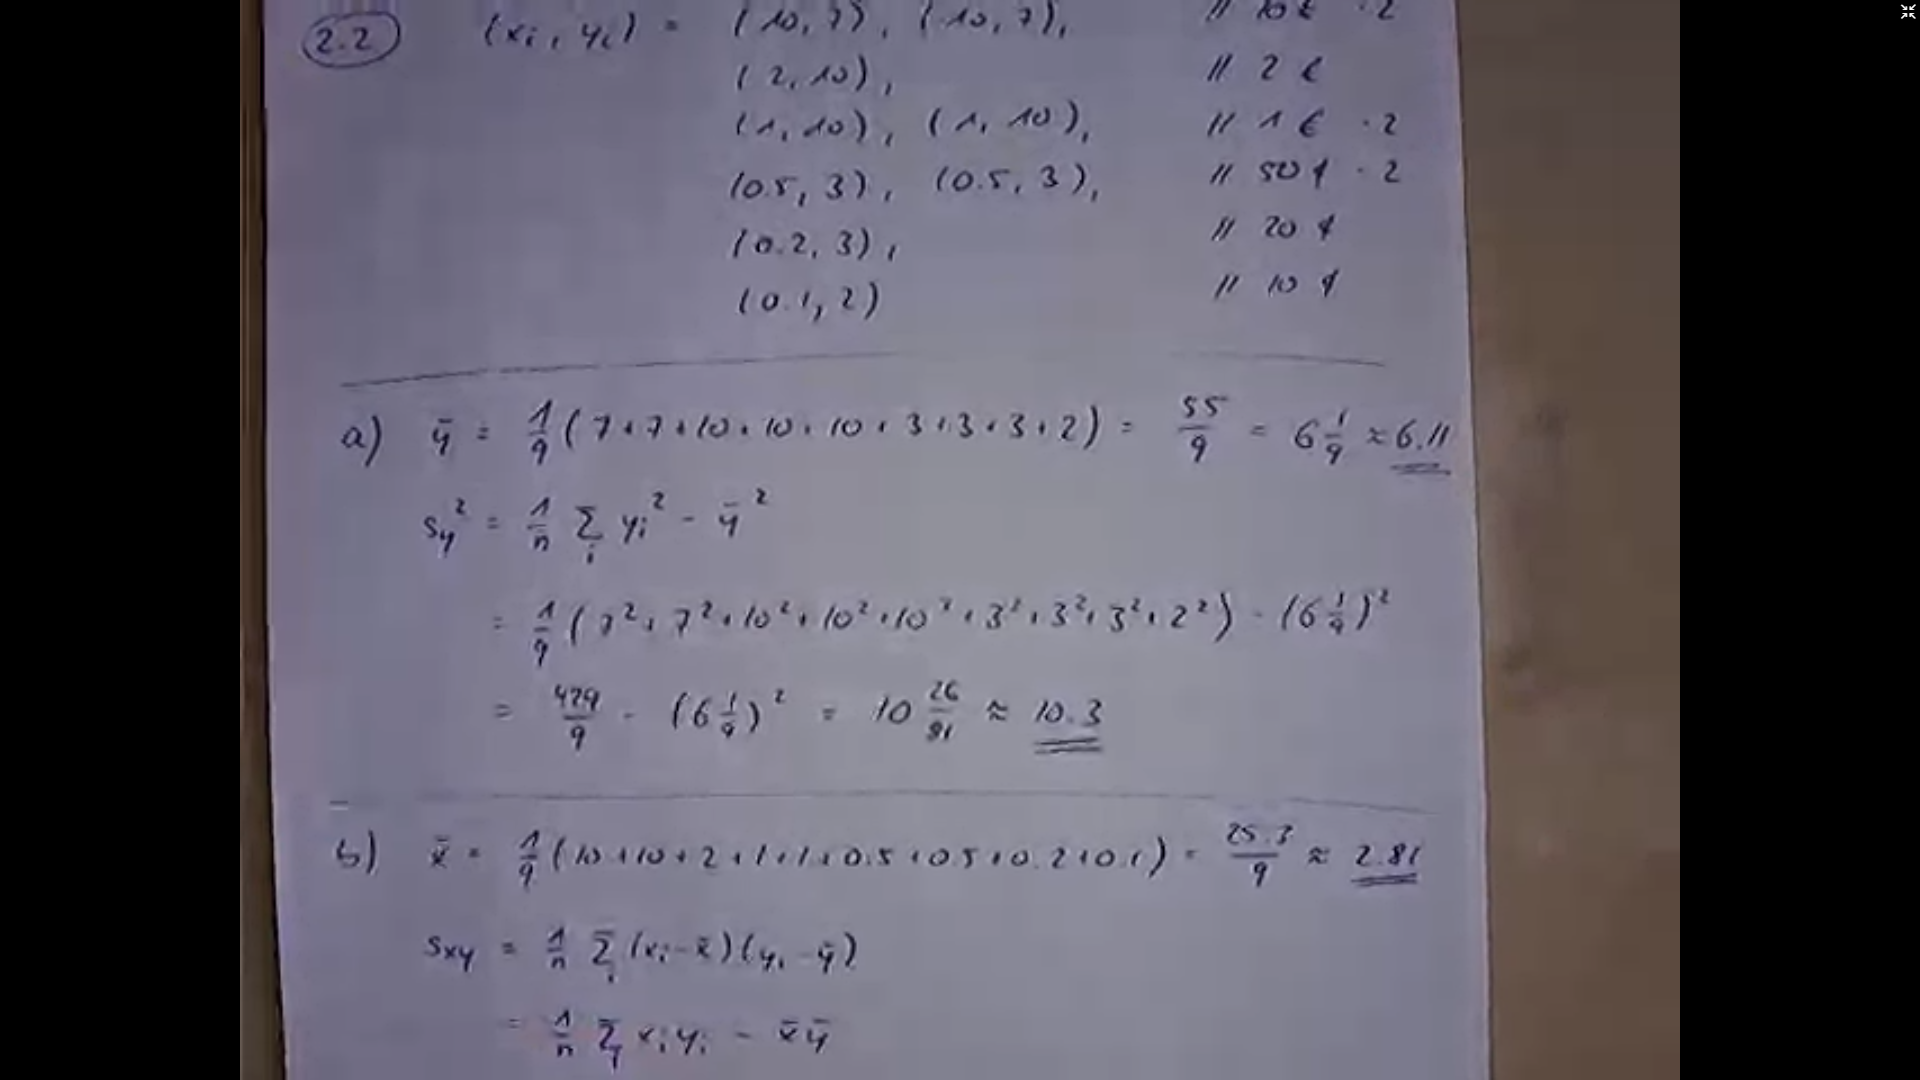 2.2 (xi, yi) = (10, 7), (10, 7), // 10 € · 2
(2, 10), // 2 €
(1, 10), (1, 10), // 1 € · 2
(0.5, 3), (0.5, 3), // 50 ¢ · 2
(0.2, 3), // 20 ¢
(0.1, 2) // 10 ¢
a) ȳ = 1/9 (7+7+10+10+10+3+3+3+2) = 55/9 = 6 1/9 ≈ 6.11
sy² = 1/n Σi yi² - ȳ²
= 1/9 (7²+7²+10²+10²+10²+3²+3²+3²+2²) - (6 1/9)²
= 429/9 - (6 1/9)² = 10 26/81 ≈ 10.3
b) x̄ = 1/9 (10+10+2+1+1+0.5+0.5+0.2+0.1) = 25.3/9 ≈ 2.81
sxy = 1/n Σi (xi-x̄)(yi-ȳ)
= 1/n Σi xi yi - x̄ȳ